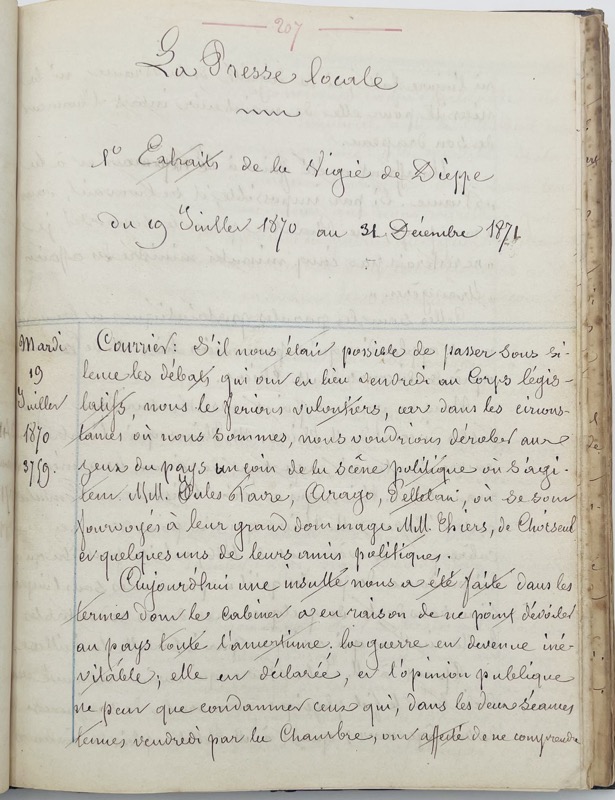 207
La Presse locale
1º Extraits de la Vigie de Dieppe
du 19 Juillet 1870 au 31 Décembre 1871
Mardi
19
Juillet
1870
3759.
Courrier: S'il nous était possible de passer sous si-
lence les débats qui ont eu lieu vendredi au Corps légis-
latifs, nous le ferions volontiers, car dans les circons-
tances où nous sommes, nous voudrions dérober aux
yeux du pays un coin de la scène politique où s'agi-
tent M.M. Jules Favre, Arago, Pelletan, où se sont
fourvoyés à leur grand dommage M.M. Thiers, de Choiseul
et quelques uns de leurs amis politiques.
Aujourd'hui une insulte nous a été faite dans les
termes dont le cabinet a eu raison de ne point dévoiler
au pays toute l'amertume. la guerre est devenue iné-
vitable; elle est déclarée, et l'opinion publique
ne peut que condamner ceux qui, dans les deux séances
tenues vendredi par la Chambre, ont affecté de ne comprendre